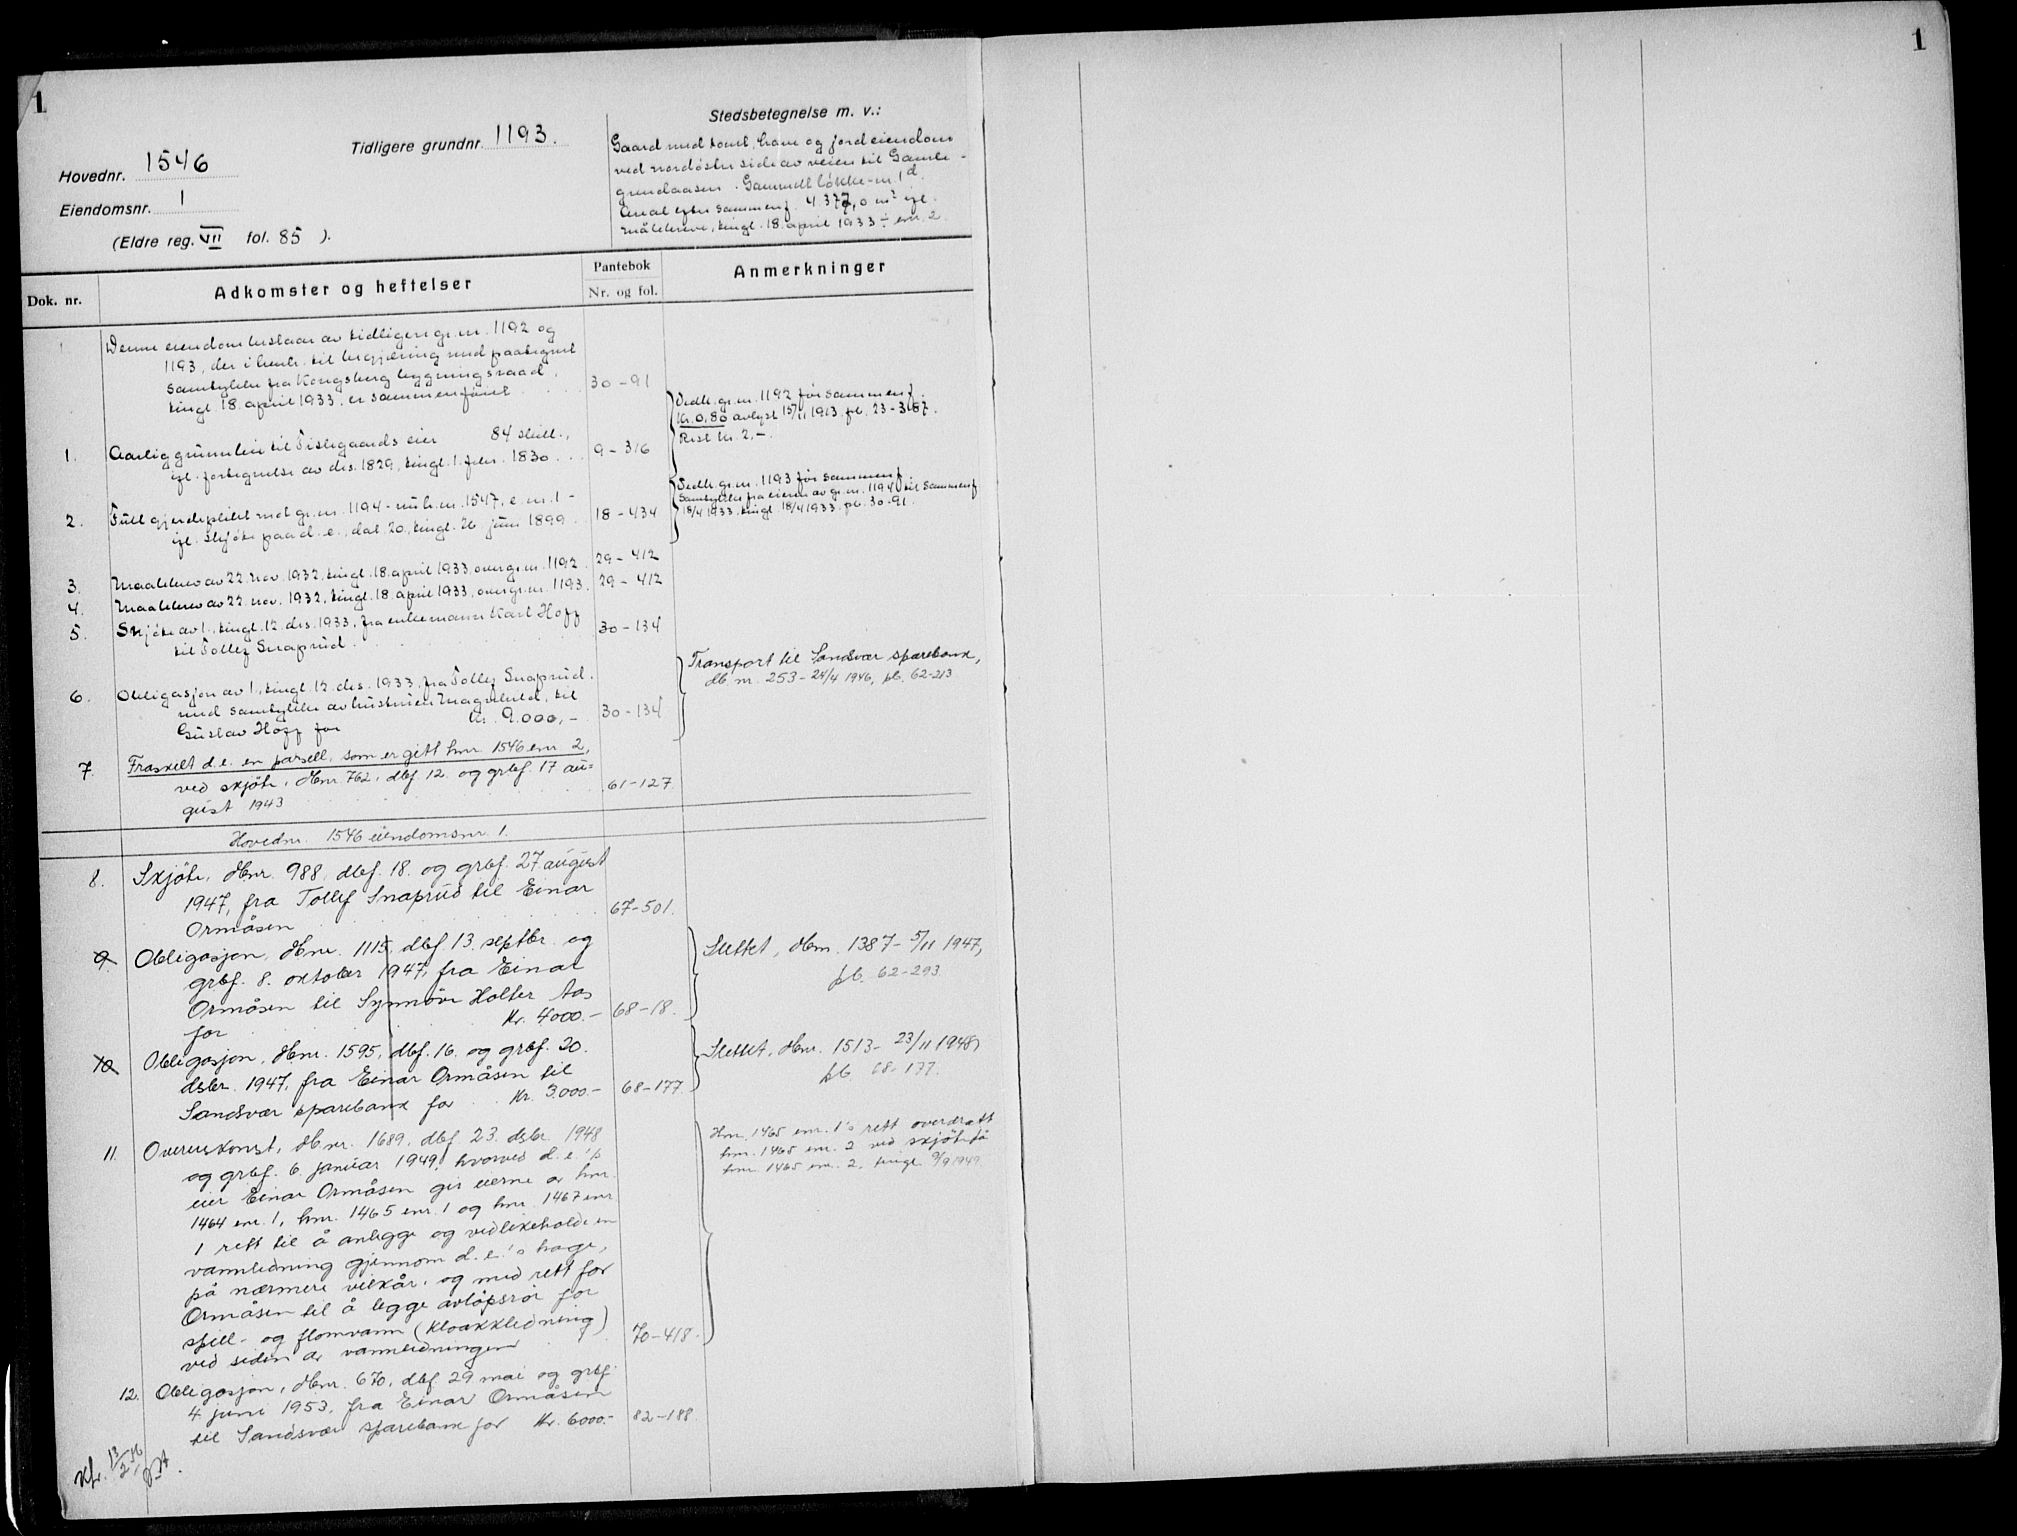 1
1
Hovednr. 1546
Tidligere grundnr. 1193.
Eiendomsnr. 1
(Eldre reg. VII fol. 85 ).
Stedsbetegnelse m. v.:
Gaard med tomt, have og jordeiendom
ved nordøstre side av veien til Gamle-
grendaasen. Gammelt løkke-nr. 1d.
Areal efter sammenf. 4 377,0 m² ifl.
målebrev, tingl. 18. april 1933 ÷ enr. 2.
Dok. nr.
Adkomster og heftelser
Pantebok
Nr. og fol.
Anmerkninger
Denne eiendom bestaar av tidligere gr.nr. 1192 og
1193, der i henh. til begjæring med paategnet
samtykke fra Kongsberg bygningsraad,
tingl. 18. april 1933, er sammenføiet . . . 30-91
1. Aarlig grunnleie til Tislegaards eier 84 skill.,
ifl. fortegnelse av des. 1829, tingl. 1. febr. 1830 . . 9-316
{Vedk. gr.nr. 1192 før sammenf.
Kr. 0,80 avlyst 15/11 1913. pb. 23-367.
Rest kr. 2,-.
2. Full gjerdeplikt mot gr.nr. 1194 - nu h.nr. 1547, e.nr. 1 -
ifl. skjøte paa d.e., dat. 20, tingl. 26 juni 1899. 18-434
{Vedk. gr.nr. 1193 før sammenf.
Samtykke fra eieren av gr.nr. 1194 til sammenf.
18/4 1933, tingl. 18/4 1933. pb. 30-91.
3. Maalebrev av 22. nov. 1932, tingl. 18. april 1933, over gr.nr. 1192. 29-412
4. Maalebrev av 22. nov. 1932, tingl. 18. april 1933, over gr.nr. 1193. 29-412
5. Skjøte av 1., tingl. 12. des. 1933, fra enkemann Karl Hoff
til Tollef Snaprud . 30-134
6. Obligasjon av 1., tingl. 12. des. 1933, fra Tollef Snaprud,
med samtykke av hustruen Magnhild, til
Gustav Hoff for kr. 9.000,- 30-134
{Transport til Sandsvær sparebank,
db. nr. 253 - 24/4 1946, pb. 62-213
7. Fraskilt d.e. en parsell, som er gitt hnr. 1546 enr. 2,
ved skjöte, dbnr. 762, dbf. 12. og grbf. 17 au=
gust 1943 61-127.
Hovednr. 1546 eiendomsnr. 1.
8. Skjöte, dbnr. 988, dbf. 18. og grbf. 27 august
1947, fra Tollef Snaprud til Einar
Ormåsen 67-501.
9. Obligasjon, dbnr. 1115, dbf. 13. septbr. og
grbf. 8. oktober 1947, fra Einar
Ormåsen til Synnöve Holter Aas
for kr. 4000.- 68-18.
{Slettet, dbnr. 1387 - 5/11 1947,
pb. 62-293.
10. Obligasjon, dbnr. 1595, dbf. 16. og grbf. 20.
dsbr. 1947, fra Einar Ormåsen til
Sandsvær sparebank for . . kr. 3.000.- 68-177.
{Slettet, dbnr. 1513 - 23/11 1948,
pb. 68-177.
11. Overenskomst, dbnr. 1689, dbf. 23. dsbr. 1948
og grbf. 6. januar 1949, hvorved d.e.'s
eier Einar Ormåsen gir eierne av hnr.
1464 enr. 1, hnr. 1465 enr. 1 og hnr. 1467 enr.
1 rett til å anlegge og vedlikeholde en
vannledning gjennom d.e.'s hage,
på nærmere vilkår, og med rett for
Ormåsen til å legge avlöpsrör for
spill- og flomvann (kloakkledning)
ved siden av vannledningen 70-418.
{Hnr. 1465 enr. 1's rett overdratt
hnr. 1465 enr. 2 ved skjöte på
hnr. 1465 enr. 2, tingl. 9/9 1949.
12. Obligasjon, dbnr. 670, dbf. 29 mai og grbf.
4 juni 1953, fra Einar Ormåsen
til Sandsvær sparebank for kr. 6000.- 82-188.
Kfr. 13/2 56